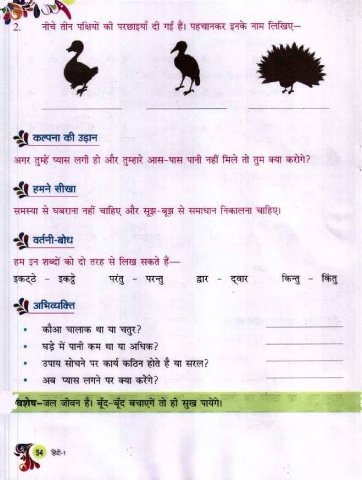 2. नीचे तीन पक्षियों की परछाइयाँ दी गई हैं। पहचानकर इनके नाम लिखिए–
कल्पना की उड़ान
अगर तुम्हें प्यास लगी हो और तुम्हारे आस-पास पानी नहीं मिले तो तुम क्या करोगे?
हमने सीखा
समस्या से घबराना नहीं चाहिए और सूझ-बूझ से समाधान निकालना चाहिए।
वर्तनी-बोध
हम इन शब्दों को दो तरह से लिख सकते है—
इकट्‌ठे - इकट्ठे परंतु - परन्तु द्वार - द्‌वार किन्तु - किंतु
अभिव्यक्ति
• कौआ चालाक था या चतुर?
• घड़े में पानी कम था या अधिक?
• उपाय सोचने पर कार्य कठिन होते है या सरल?
• अब प्यास लगने पर क्या करेंगे?
विशेष–जल जीवन है। बूँद-बूँद बचाएगें तो ही सुख पायेगें।
54 हिंदी-1